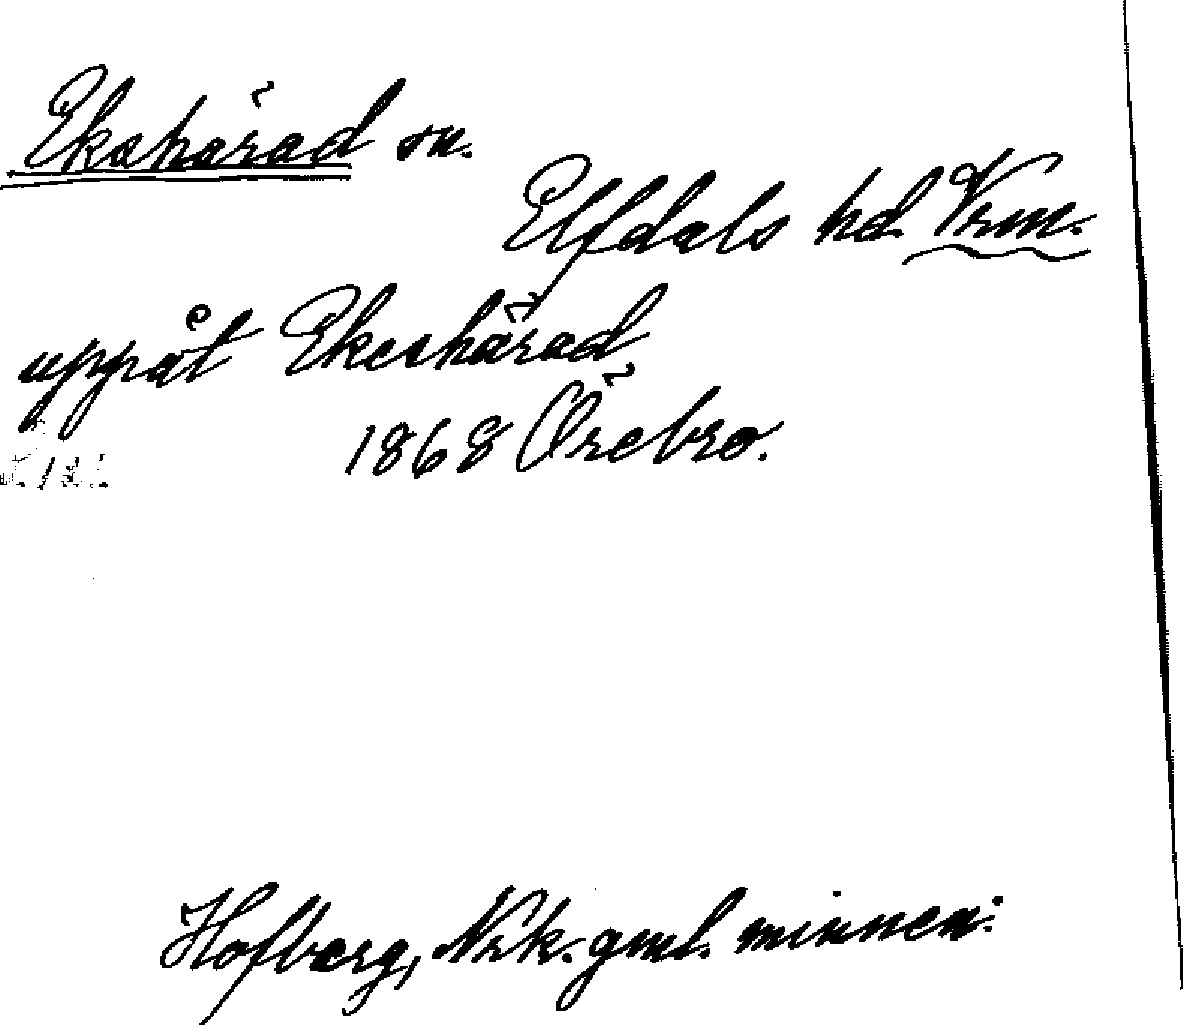 Ekshärad sn.
Elfdals hd. Vrm.
uppåt Ekeshärad
1868 Örebro.
Hofberg, Nrk. gml. minnen.